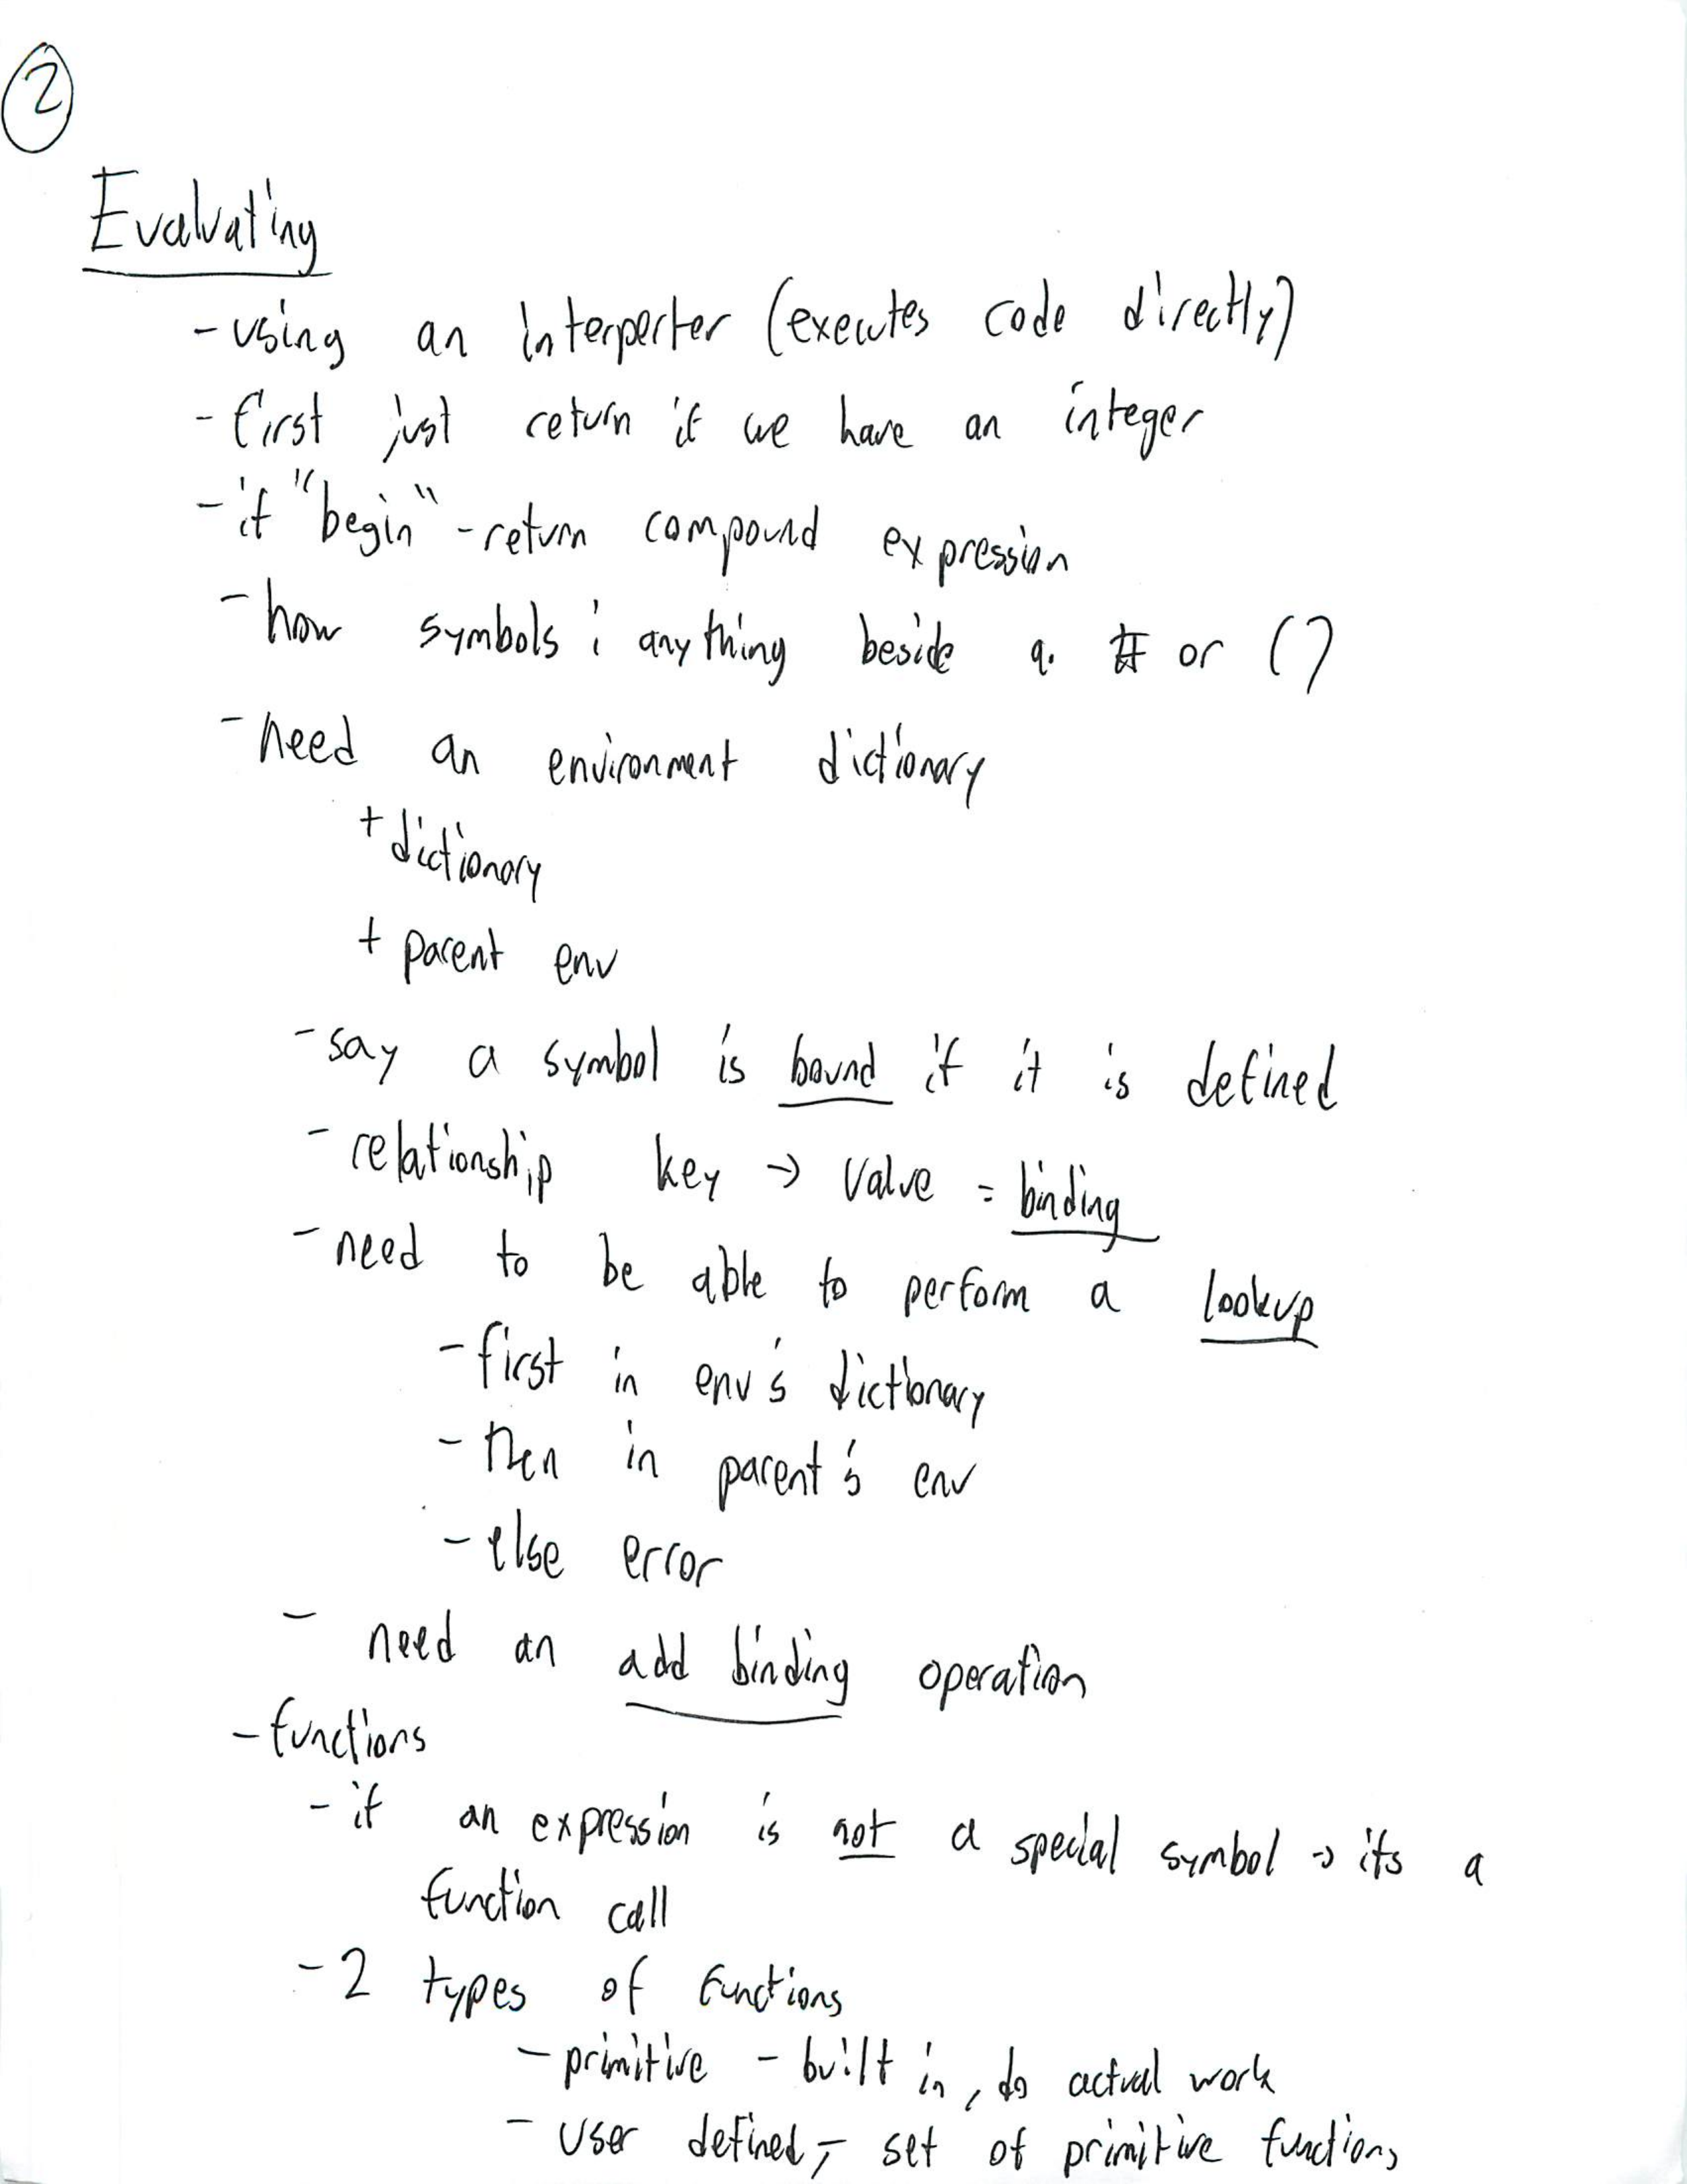 2
Evaluating
- using an interperter (executes code directly)
- first just return if we have an integer
- if "begin" - return compound expression
- how symbols : anything beside a # or ()
- need an environment dictionary
+ dictionary
+ parent env
- say a symbol is bound if it is defined
- relationship key → value = binding
- need to be able to perform a lookup
- first in env's dictionary
- then in parent's env
- else error
- need an add binding operation
- functions
- if an expression is not a special symbol → its a
function call
- 2 types of functions
- primitive - built in, do actual work
- user defined, - set of primitive functions